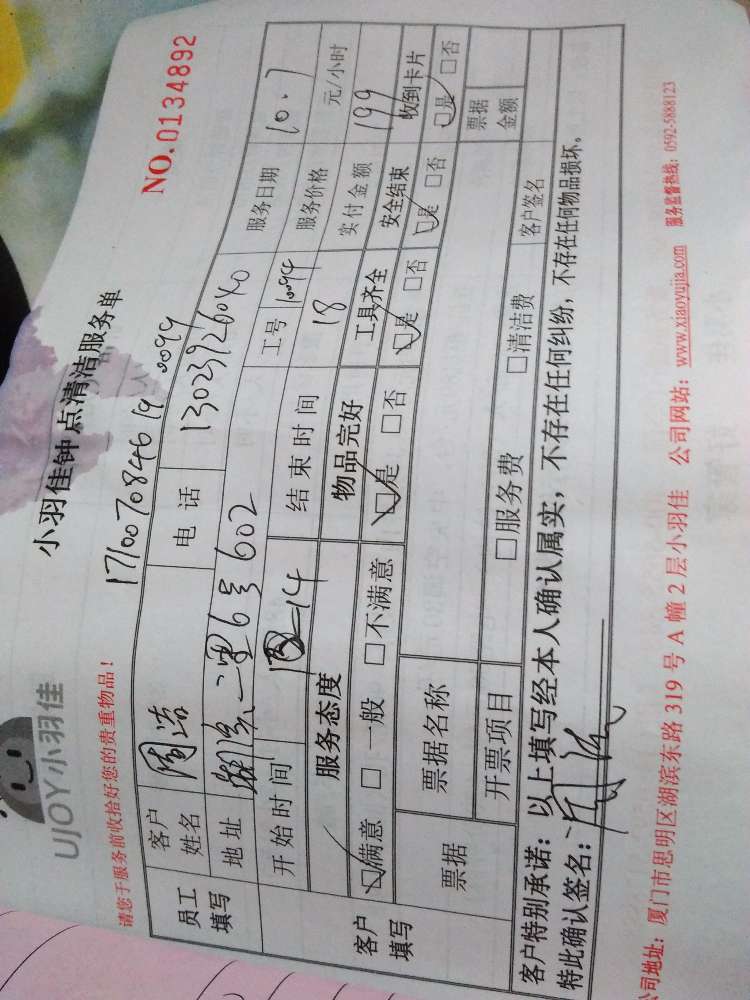 UJOY小羽佳
小羽佳钟点清洁服务单
NO.0134892
请您于服务前收拾好您的贵重物品！
1710070846190099
员工填写 客户姓名 周洁 电话 13023926040 服务日期 10.7
地址 二里6号602 工号 10094 服务价格 元/小时
开始时间 14 结束时间 18 实付金额 199
客户填写 服务态度 物品完好 工具齐全 安全结束 收到卡片
□满意 □一般 □不满意 □是 □否 □是 □否 □是 □否 □是 □否
票据 票据名称 票据金额
开票项目 □服务费 □清洁费 客户签名
客户特别承诺：以上填写经本人确认属实，不存在任何纠纷，不存在任何物品损坏。
特此确认签名：
公司地址：厦门市思明区湖滨东路319号A幢2层小羽佳 公司网站：www.xiaoyujia.com 服务监督热线：0592-5888123